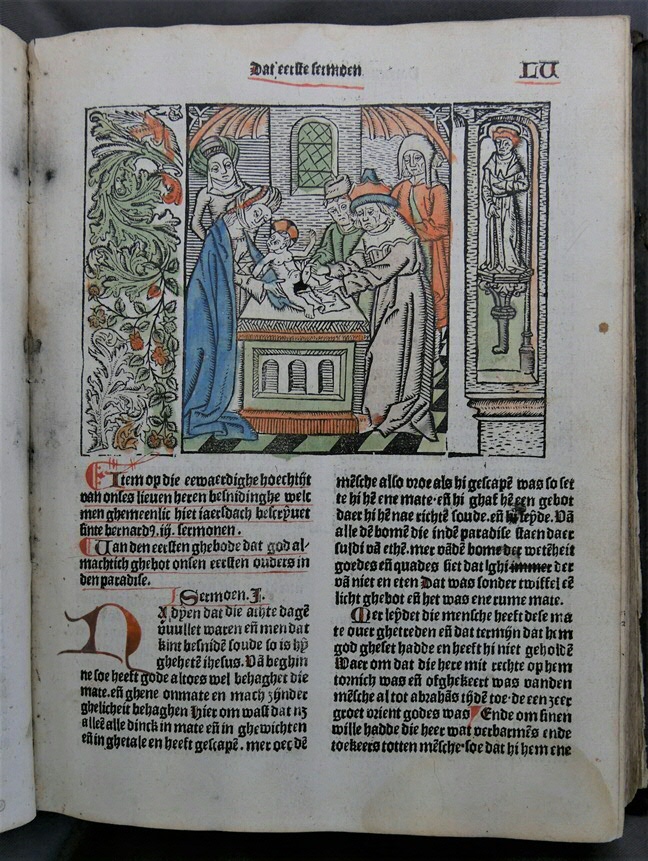 Dat eerste sermoen
LV
Item op die eewaerdighe hoechtijt
van onses lieuen heren besnidinghe welc
men ghemeenlic hiet iaersdach bescrijuet
sinte bernardꝰ. iij. sermonen.
Uan den eersten ghebode dat god al-
machtich ghebot onsen eersten ouders in
den paradise.
Sermoen. I.
NAdyen dat die achte dagē
vuullet waren eñ men dat
kint besnidē soude so is hij
ghehetē ihesus. Uā beghin
ne soe heeft gode altoes wel behaghet die
mate. eñ ghene onmate en mach zijnder
ghelicheit behaghen Hier om wast dat
alleē alle dinck in mate eñ in ghewichten
eñ in ghetale en heeft gescapē. mer oec dē
mēsche also vroe als hi gescapē was so set
te hi hē ene mate. eñ hi ghaf hē een gebot
daer hi hē nae richtē soude. eñ hi seyde. Uā
alle dē bomē die indē paradise staen daer
suldi vā ethē. mer vādē bome der wetēheit
goedes eñ quades siet dat ghi immer der
vā niet en eten Dat was sonder twiffel eē
licht ghebot eñ het was ene rume mate.
Mer leydet die mensche heeft dese ma
te ouer ghetreden eñ dat termijn dat hem
god gheset hadde en heeft hi niet geholdē
Waer om dat die here mit rechte op hem
tornich was eñ ofghekeert was vanden
mēsche al tot abrahās tijdē toe. de een zeer
groet orient godes was Ende om sinen
wille hadde die heer wat verbarmēs ende
toekeers totten mēsche. soe dat hi hem ene